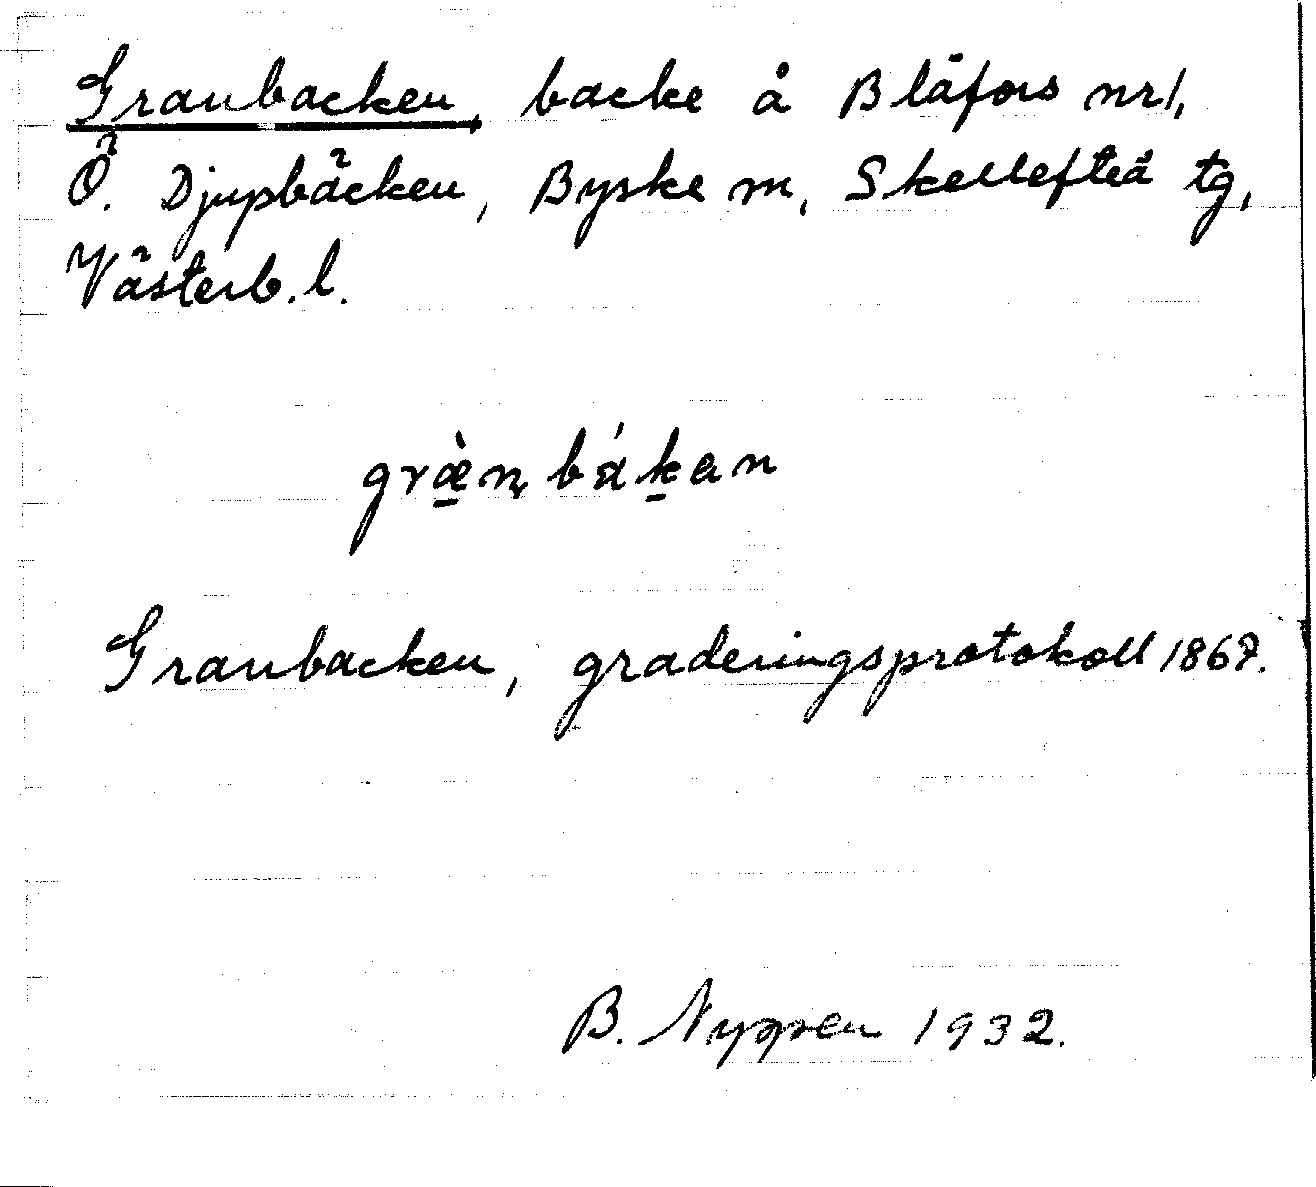 Granbacken, backe å Blåfors nr 1,
Ö. Djupbäcken, Byske sn, Skellefteå tg,
Västerb. l.
græ̀n̥bákan
Granbacken, graderingsprotokoll 1867.
B. 1932.